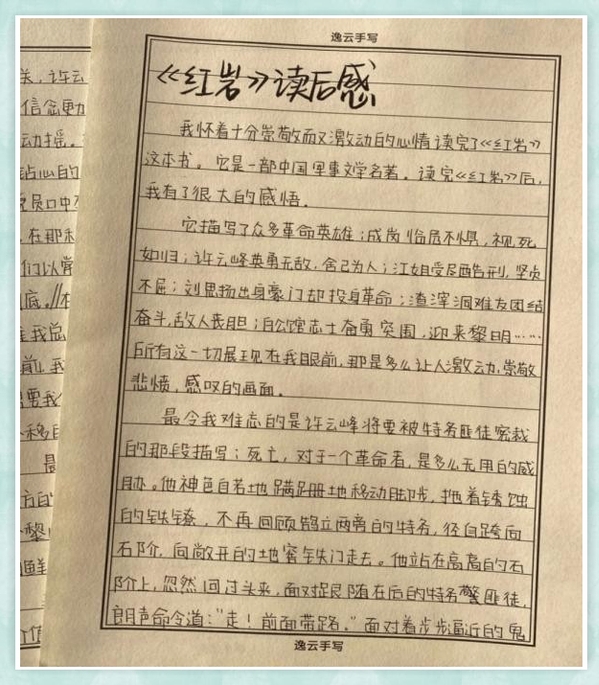 逸云手写
《红岩》读后感
我怀着十分崇敬而又激动的心情读完了《红岩》
这本书。它是一部中国军事文学名著。读完《红岩》后,
我有了很大的感悟。
它描写了众多革命英雄;成岗临危不惧,视死
如归;许云峰英勇无敌,舍己为人;江姐受尽酷刑,坚贞
不屈;刘思扬出身豪门却投身革命;渣滓洞难友团结
奋斗,敌人丧胆;白公馆志士奋勇突围,迎来黎明……
所有这一切展现在我眼前,那是多么让人激动,崇敬
悲愤,感叹的画面。
最令我难忘的是许云峰将要被特务匪徒密裁
的那段描写;死亡,对于一个革命者,是多么无用的威
胁。他神色自若地蹒跚地移动脚步,拖着锈蚀
的铁镣,不再回顾鹄立两旁的特务,径自跨向
石阶,向敞开的地窖铁门走去。他站在高高的石
阶上,忽然回过头来,面对跟随在后的特务警匪徒,
朗声命令道:"走!前面带路。"面对着步步逼近的鬼
逸云手写
关,许云
信念更加
动摇。
员口中
在那
们以
底。
我总
前,我
要我
移自
最
方自
黎
鲜